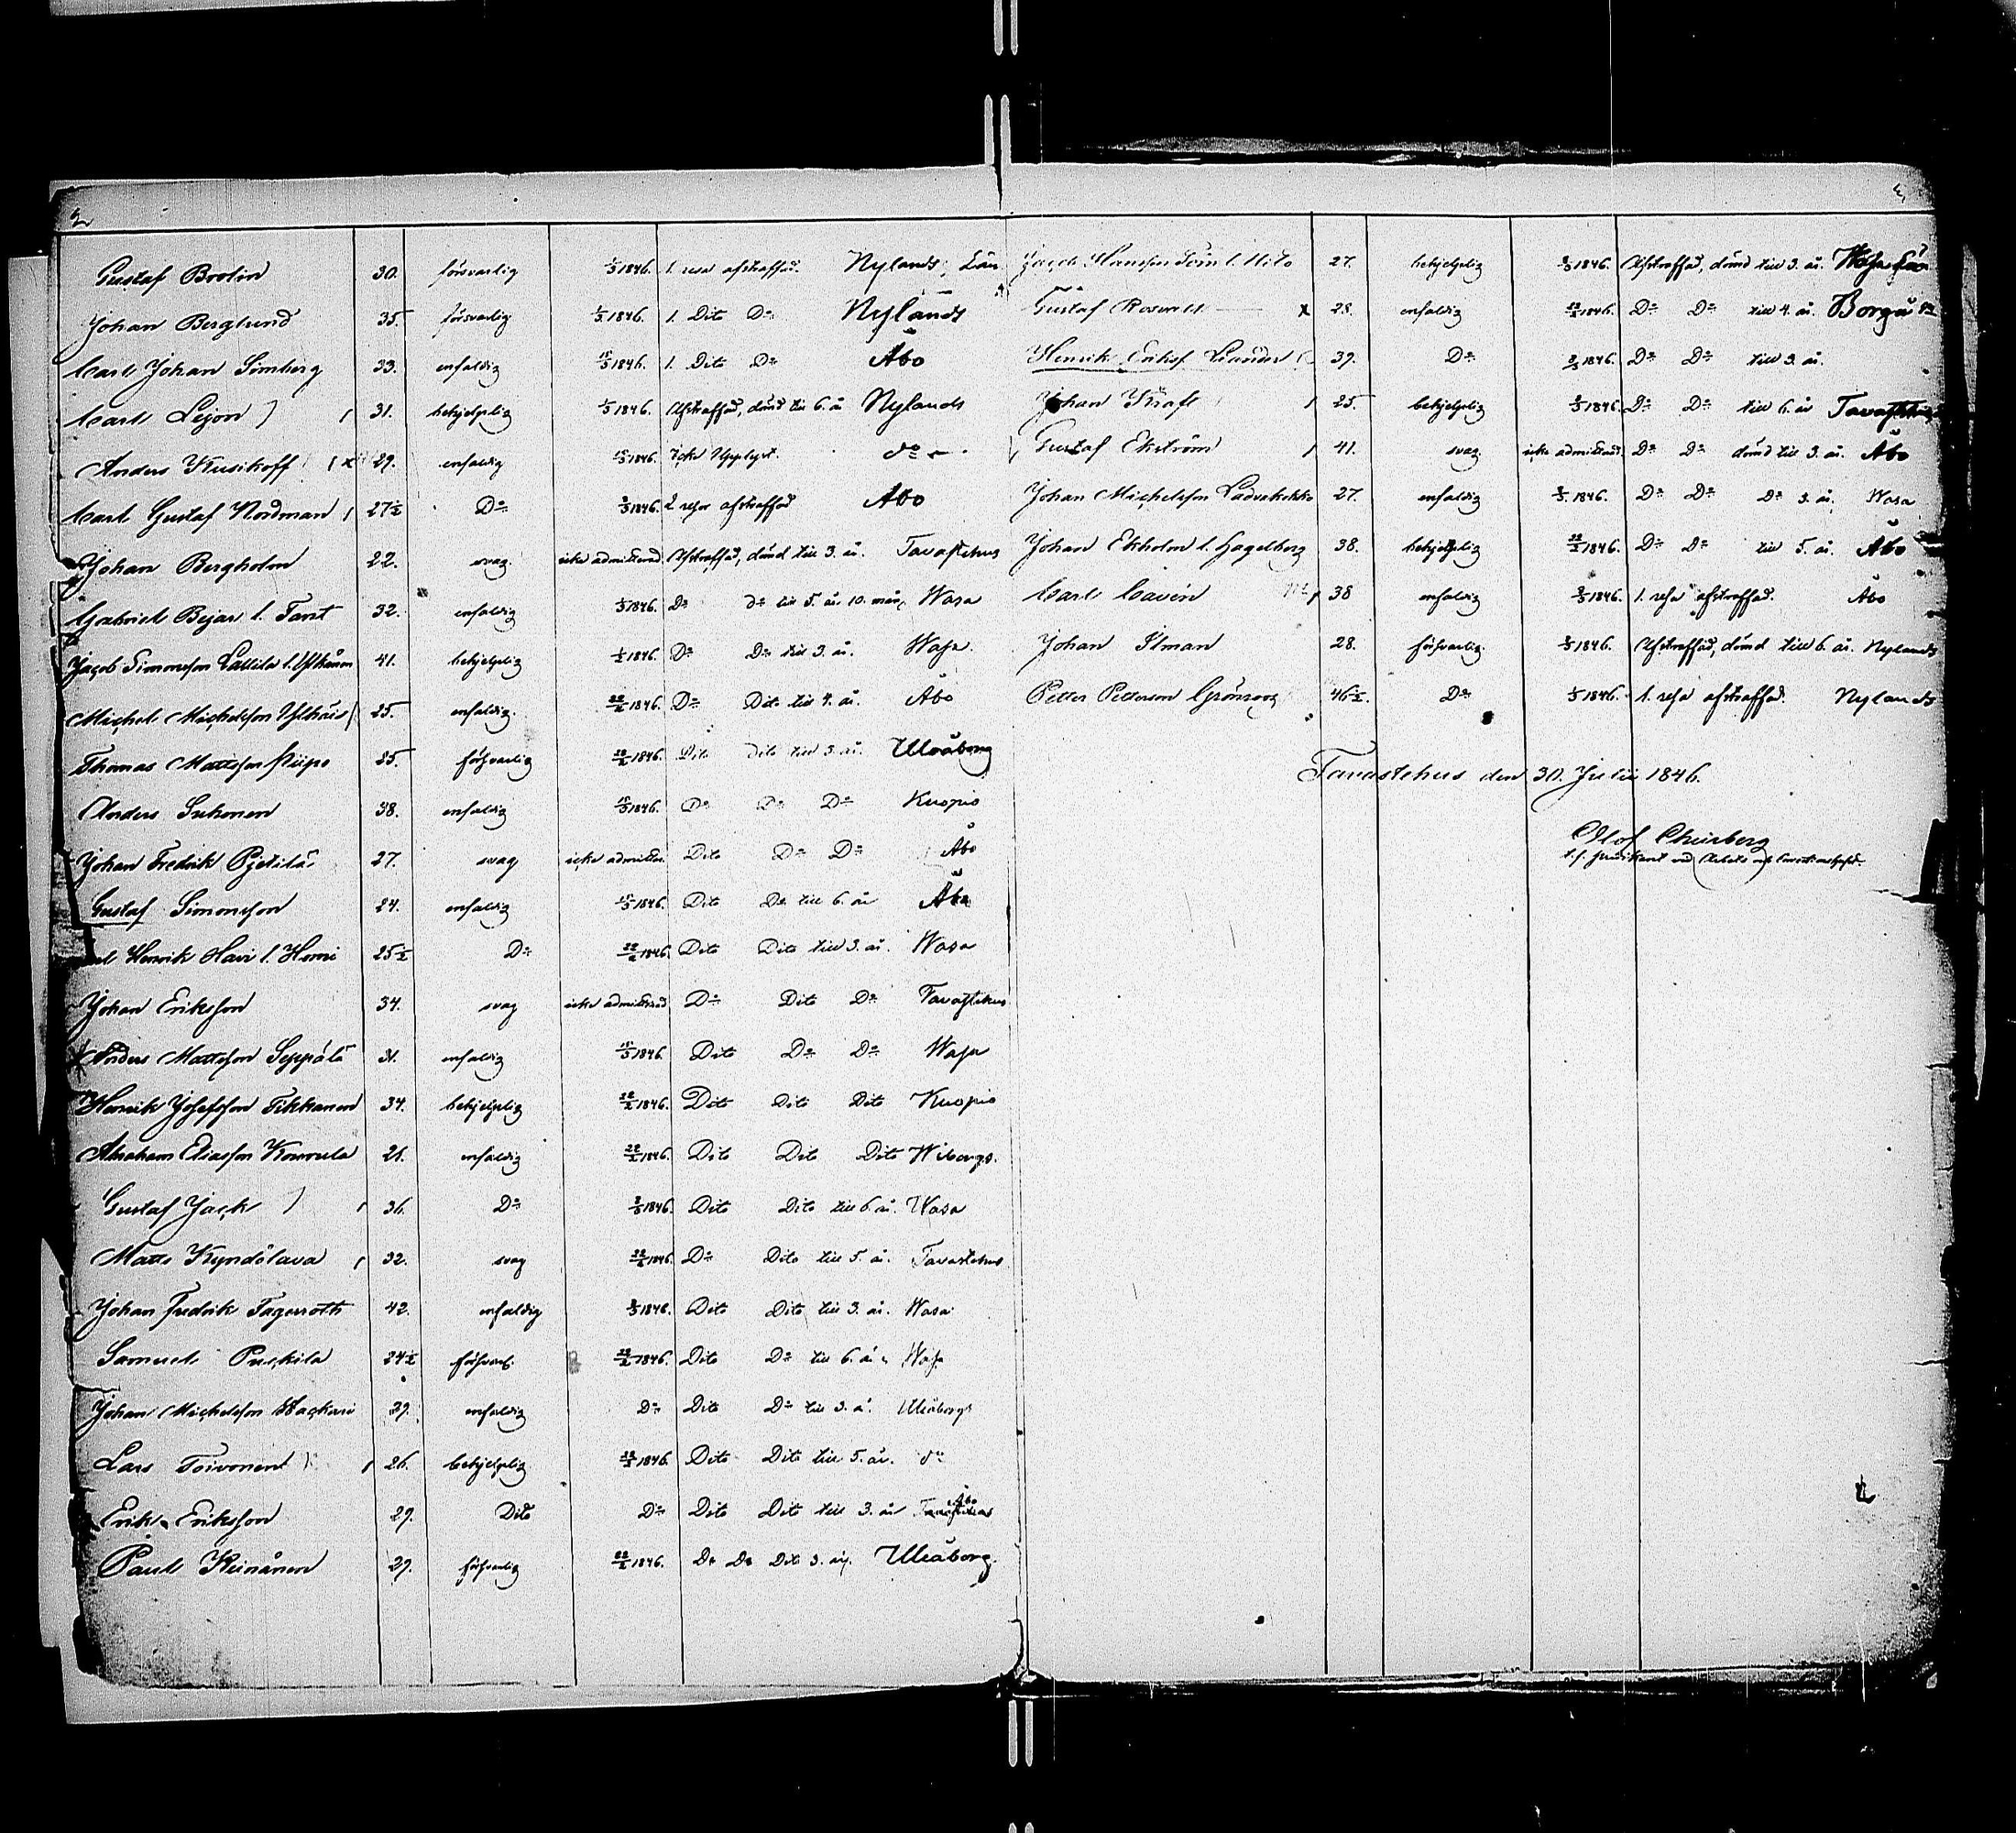 2
Gustaf Brolin 30. försvarlig 1/3 1846. 1. resa afstraffad. Nylands Län
Johan Berglund 35. försvarlig 1/3 1846. 1. Dito Do Nylands
Carl Johan Simberg 33. enfaldig 15/3 1846. 1. Dito Do Åbo
Carl Lejon 31. behjelplig 1/3 1846. Afstraffad, dömd till 6. år Nylands
Anders Kusikoff x 29. enfaldig 15/3 1846. Icke Upplyst. do
Carl Gustaf Nordman 27½ Do 1846. 2 resor afstraffad Åbo
Johan Bergholm 22. svag. icke admitterad. Afstraffad, dömd till 3. år. Tavastehus
Gabriel Bejar l. Fant 32. enfaldig 1/3 1846. Do do till 5. år. 10. mån. Wasa
Jacob Simonsson Lassila l. 41. behjelplig 1846. Do Do till 3. år. Wasa
Michel Michelsson Ylhäis 25. enfaldig. 22/2 1846. Do Dito till 4. år. Åbo
Thomas Mattsson Piipo 25. försvarlig 22/2 1846. Dito dito till 3. år. Uleåborg
Anders Suhonen 38. enfaldig 15/3 1846. Do Do Do Kuopio
Johan Fredrik Pjetilä 27. svag icke admitter. Dito Do Do Åbo
Gustaf Simonsson 24. enfaldig 15/3 1846. Dito Do till 6. år Åbo
Henrik Havi l. Homi 25½ Do 22/2 1846. Dito Dito till 3. år. Wasa
Johan Eriksson 34. svag icke admitterad Do Dito Do Tavastehus
Anders Mattsson Seppälä 31. enfaldig 15/3 1846. Dito Do Do Wasa
Henrik Josefsson Tikkanen 34. behjelplig 22/2 1846. Dito Dito Dito Kuopio
Abraham Eliasson Kouvula 26. enfaldig 22/2 1846. Dito Dito Dito Wiborgs.
Gustaf Jack 36. Do 1846. Dito Dito till 6 år. Wasa
Matts Kyndölava 32. svag 22/2 1846. Do Dito till 5. år. Tavastehus
Johan Fredrik Fagerroth 42. enfaldig 1846. Dito Dito till 3. år. Wasa
Samuel Puckila 24½ försvarl. 22/2 1846. Dito Do till 6. år Wasa
Johan Michelsson Wackari 29. enfaldig Do Dito Do till 3. år. Uleåborgs
Lars Toivonen 26. behjelplig 1846. Dito Dito till 5. år. do
Erik Eriksson 29. Dito Do Dito Dito till 3. år Tavastehus Åbo
Paul Keinänen 29. försvarlig 22/2 1846. Do Do Dito 3. år. Uleåborg.
Jacob Hansson Töin l. Nito 27. behjelplig 1846. Afstraffad, dömd till 3. år. Wasa Län
Gustaf Roswall x 28. enfaldig 22/2 1846. Do Do till 4. år. Borgå
Henrik Eriksf Launder 39. Do 1846. Do Do till 3. år.
Johan Kraft 25. behjelplig 1846. Do Do till 6. år Tavastehus
Gustaf Ekström 41. svag icke admitterad Do Do dömd till 3. år. Åbo
Johan Michelsson Ladvakokko 27. enfaldig 1846. Do Do Do 3. år. Wasa
Johan Ekholm l. Hagelberg 38. behjelplig 22/2 1846. Do Do till 5. år. Åbo
Carl Cavén 38 enfaldig 1846. 1. resa afstraffad. Åbo
Johan Ilman 28. försvarlig. 1846. Afstraffad, dömd till 6. år. Nylands
Petter Petterson Grönroos 46½. Do 1846. 1. resa afstraffad. Nylands
Tavastehus den 30. Julii 1846.
Olof Cheirberg
t.f. predikant vid Arbets och Correctionshuset.